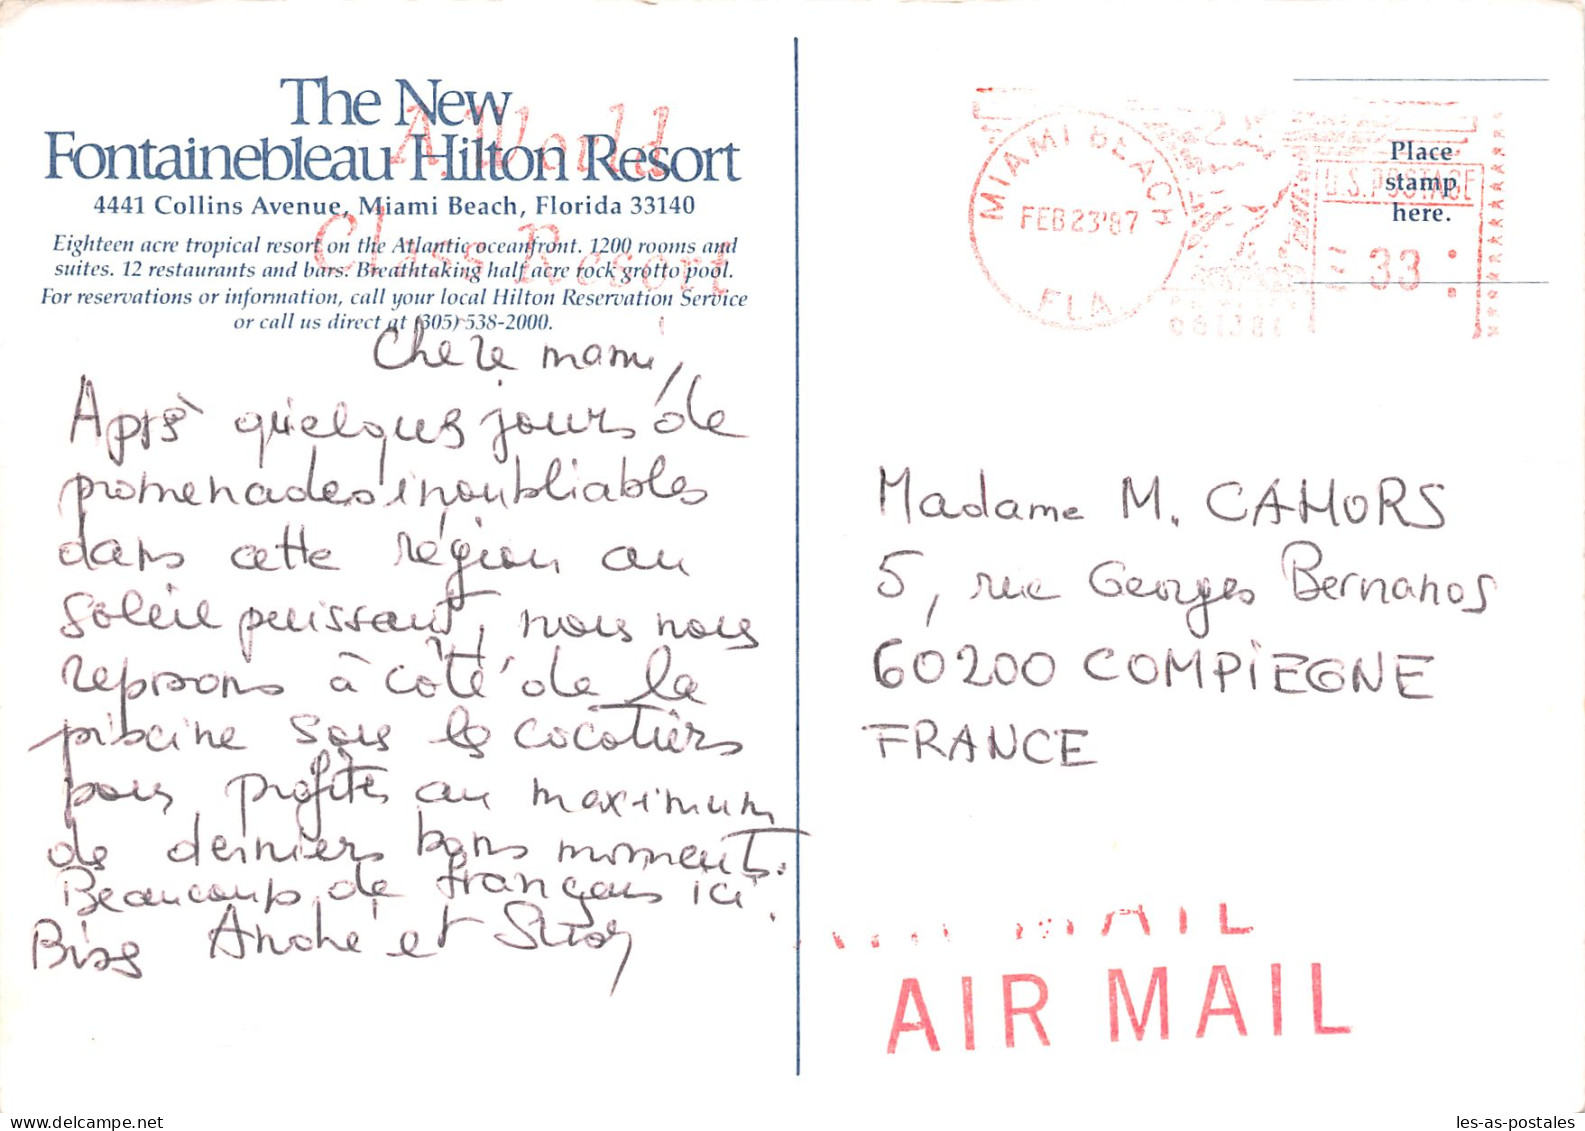 The New
Fontainebleau Hilton Resort
4441 Collins Avenue, Miami Beach, Florida 33140
Eighteen acre tropical resort on the Atlantic oceanfront. 1200 rooms and
suites. 12 restaurants and bars. Breathtaking half acre rock grotto pool.
For reservations or information, call your local Hilton Reservation Service
or call us direct at (305) 538-2000.
A World
Class Resort
Chere mami,
Après quelques jours de
promenades inoubliables
dans cette région au
soleil puissant, nous nous
reposons à côté de la
piscine sous les cocotiers
pour profiter au maximum
de derniers bons moments.
Beaucoup de français ici.
Bises André et
MIAMI BEACH
FEB 23'87
FLA
U.S. POSTAGE
33
Place
stamp
here.
Madame M. CAHORS
5, rue Georges Bernanos
60200 COMPIEGNE
FRANCE
AIR MAIL
AIR MAIL
les-as-postales